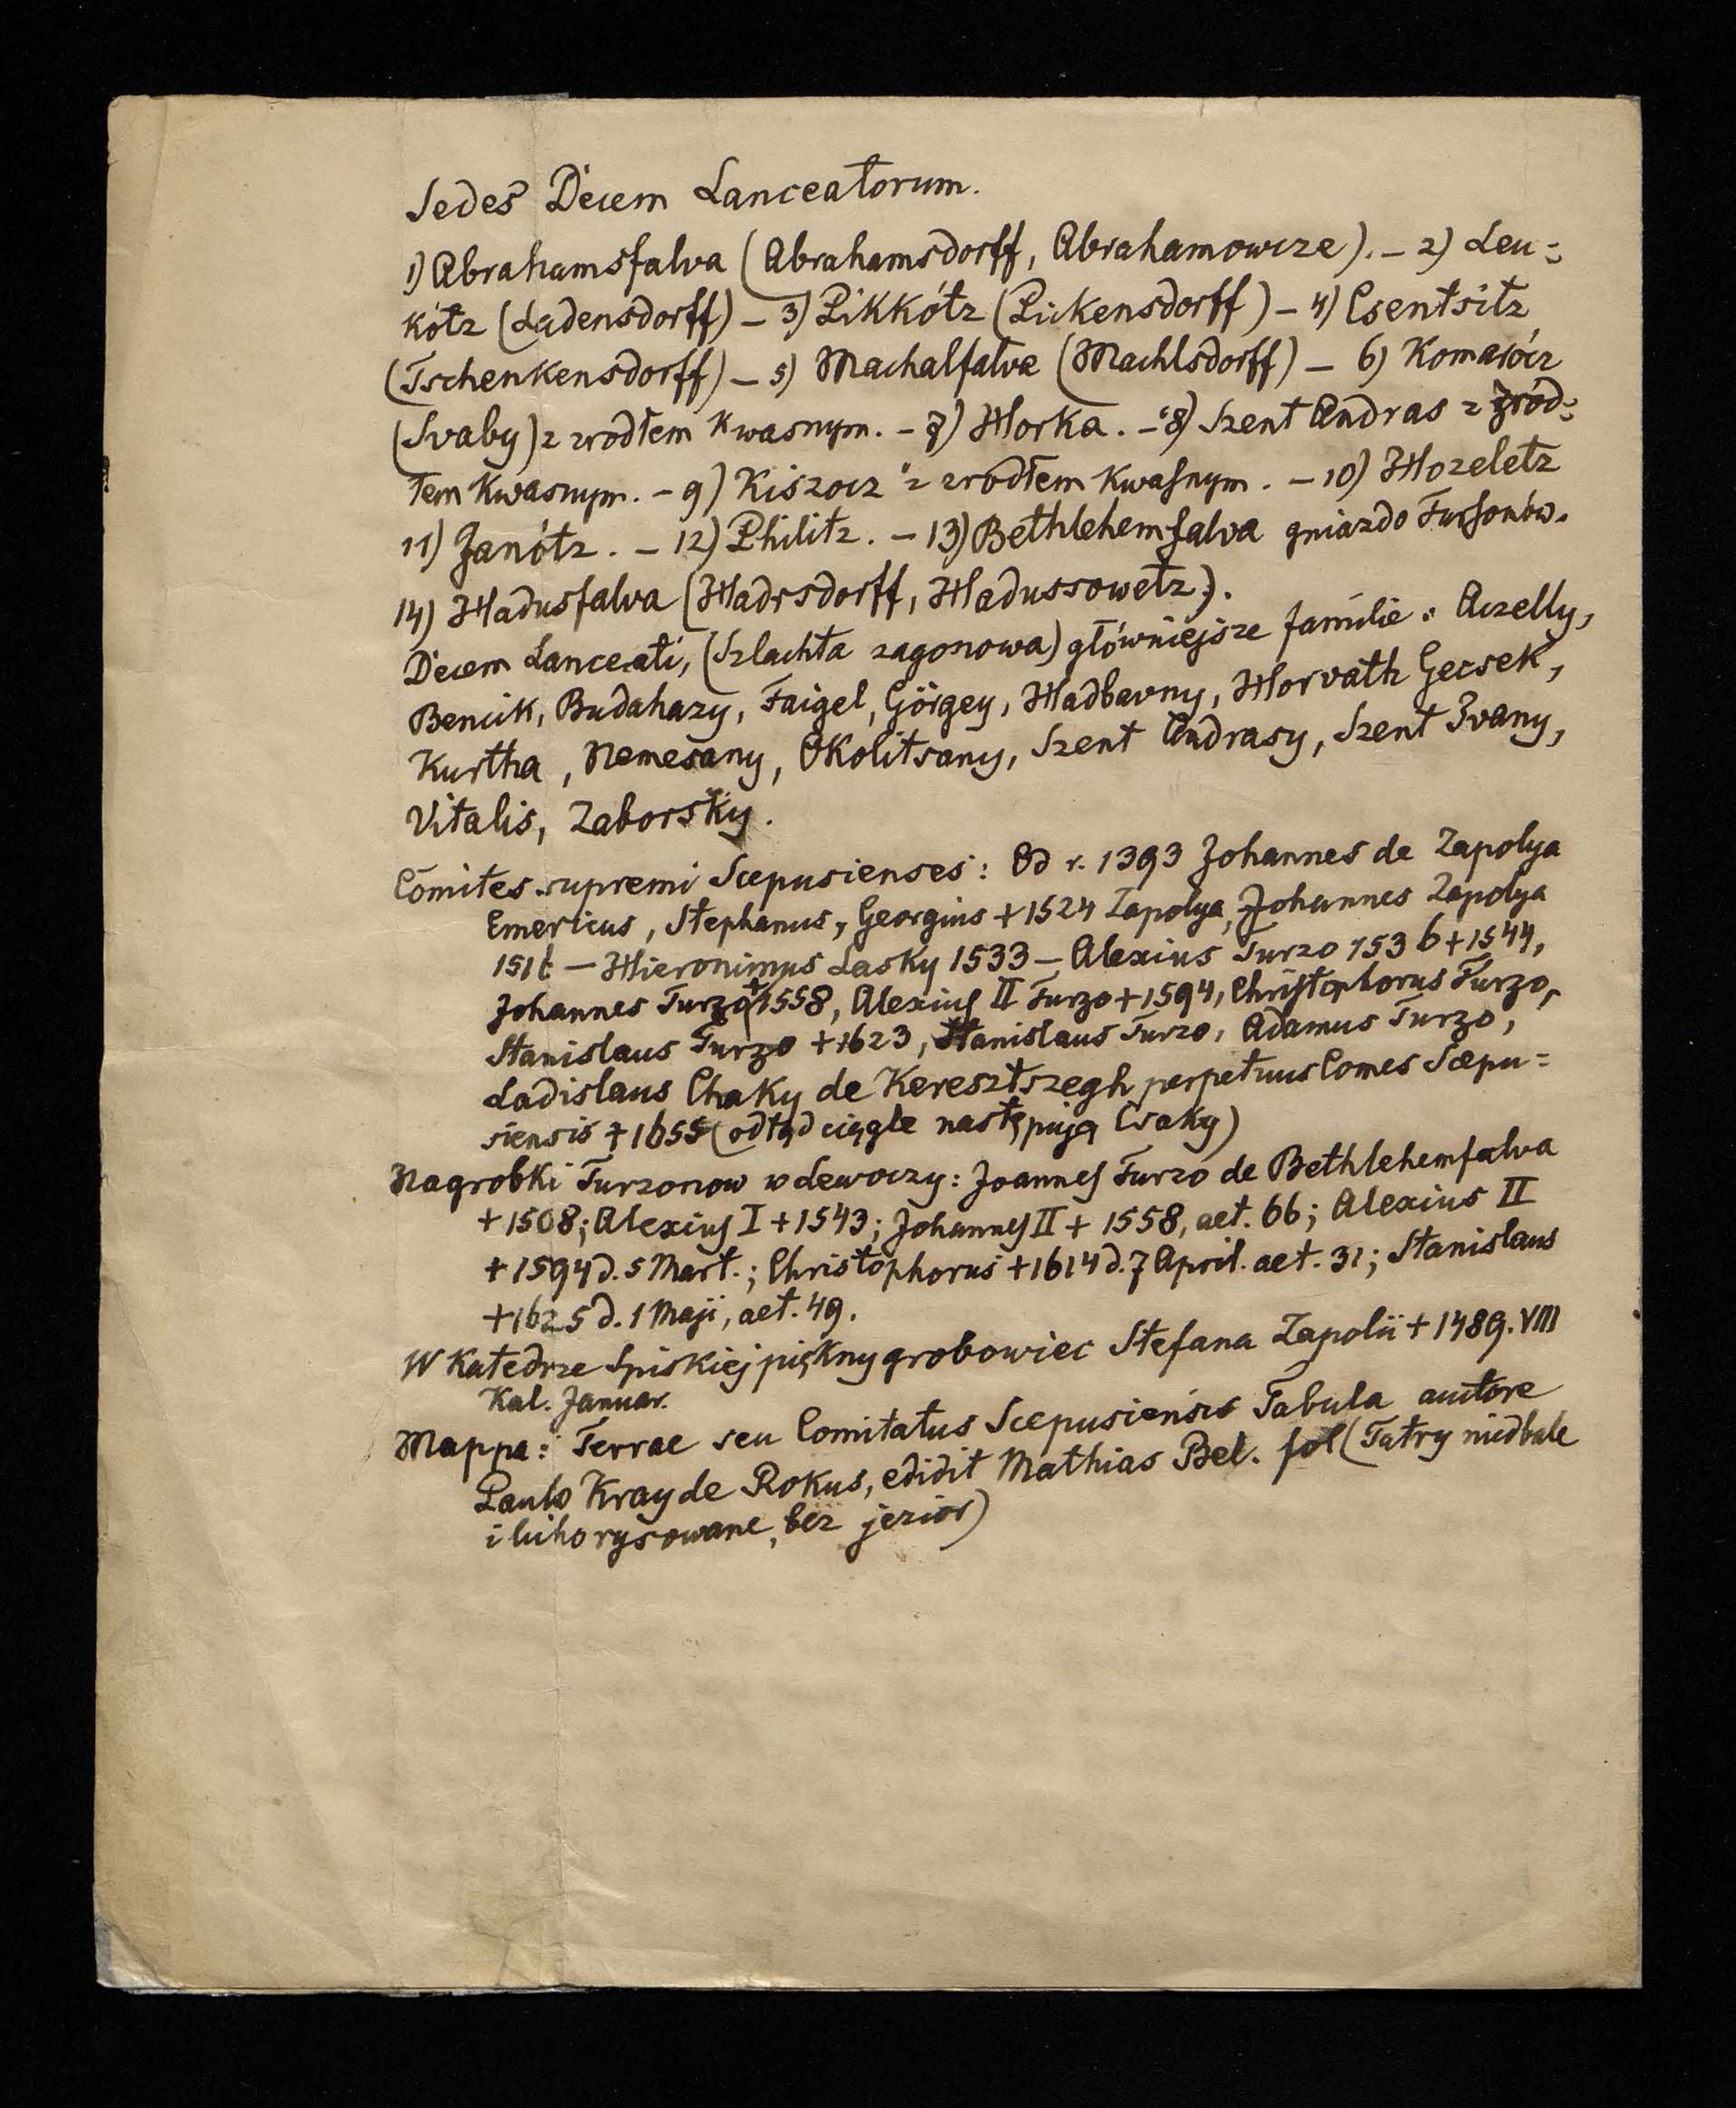 Sedes Decem Lanceatorum.
1) Abrahamsfalva (Abrahamsdorff, Abrahamowcze). – 2) Leu=
kótz (Ladensdorff) – 3) Pikkótz (Pickensdorff) – 4) Csentsitz
(Tschenkensdorff) – 5) Machalfalva (Machlsdorff) – 6) Komarócz
(Svaby) z zrodłem kwasnym. – 7) Horka. – 8) Szent Andras z źród=
łem kwasnym. – 9) Kiszocz z zrodłem kwasnym. – 10) Hozeletz
11) Janótz. – 12) Philitz. – 13) Bethlehemfalva gniazdo Tursonów.
14) Hadusfalva (Hadrsdorff, Hadussowetz).
Decem Lanceati, (Szlachta zagonowa) główniejsze familie: Aczelly,
Bencik, Budahazy, Faigel, Görgey, Hadbavny, Horváth Gecsek,
Kurtha, Nemesany, Okolitsany, Szent Andrasy, Szent Ivany,
Vitalis, Zaborsky.
Comites supremi Scepusienses: Od r. 1393 Johannes de Zapolya
Emericus, Stephanus, Georgius + 1524 Zapolya, Johannes Zapolya
– Hieronimus Lasky 1533 – Alexius Turzo 1536 + 1544,
Johannes Turzo + 1558, Alexius II Turzo + 1594, Christophorus Turzo,
Stanislaus Turzo + 1623, Stanislaus Turzo, Adamus Turzo,
Ladislaus Chaky de Keresztszegh perpetuus Comes Scepu=
siensis + 1655 (odtąd ciągle następują Csaky)
Nagrobki Turzonow w Lewoczy: Joannes Turzo de Bethlehemfalva
+ 1508; Alexius I + 1543; Johannes II + 1558, aet. 66; Alexius II
+ 1594 d. 5 Mart.; Christophorus + 1614 d. 7 April. aet. 31; Stanislaus
+ 1625 d. 1 Maji, aet. 49.
W Katedrze Spiskiej piękny grobowiec Stefana Zapolii + 1489. VIII
Kal. Januar.
Mappa: Terrae seu Comitatus Scepusiensis Tabula autore
Paulo Kray de Rokus, edidit Mathias Bel. fol (Tatry niedbale
i licho rysowane, bez jezior)